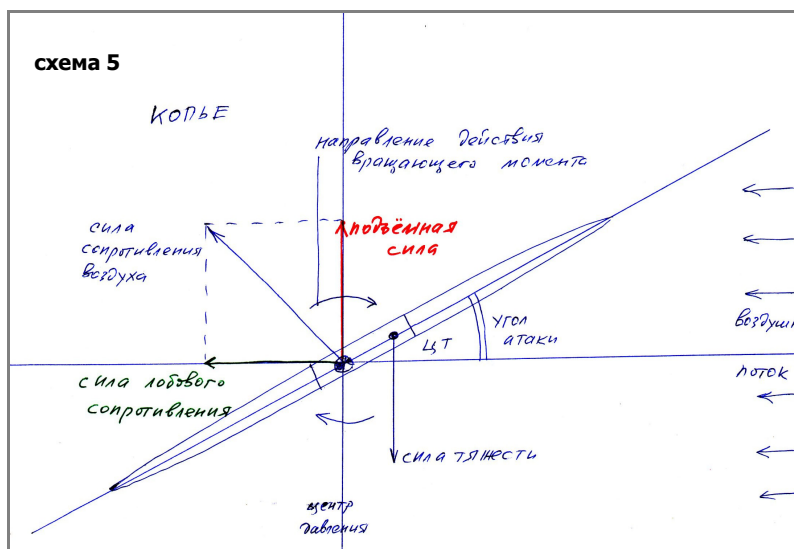 схема 5
КОПЬЕ
направление действия
вращающего момента
сила
сопротивления
воздуха
подъёмная
сила
воздушн
угол
атаки
ЦТ
поток
сила лобового
сопротивления
сила тяжести
центр
давления